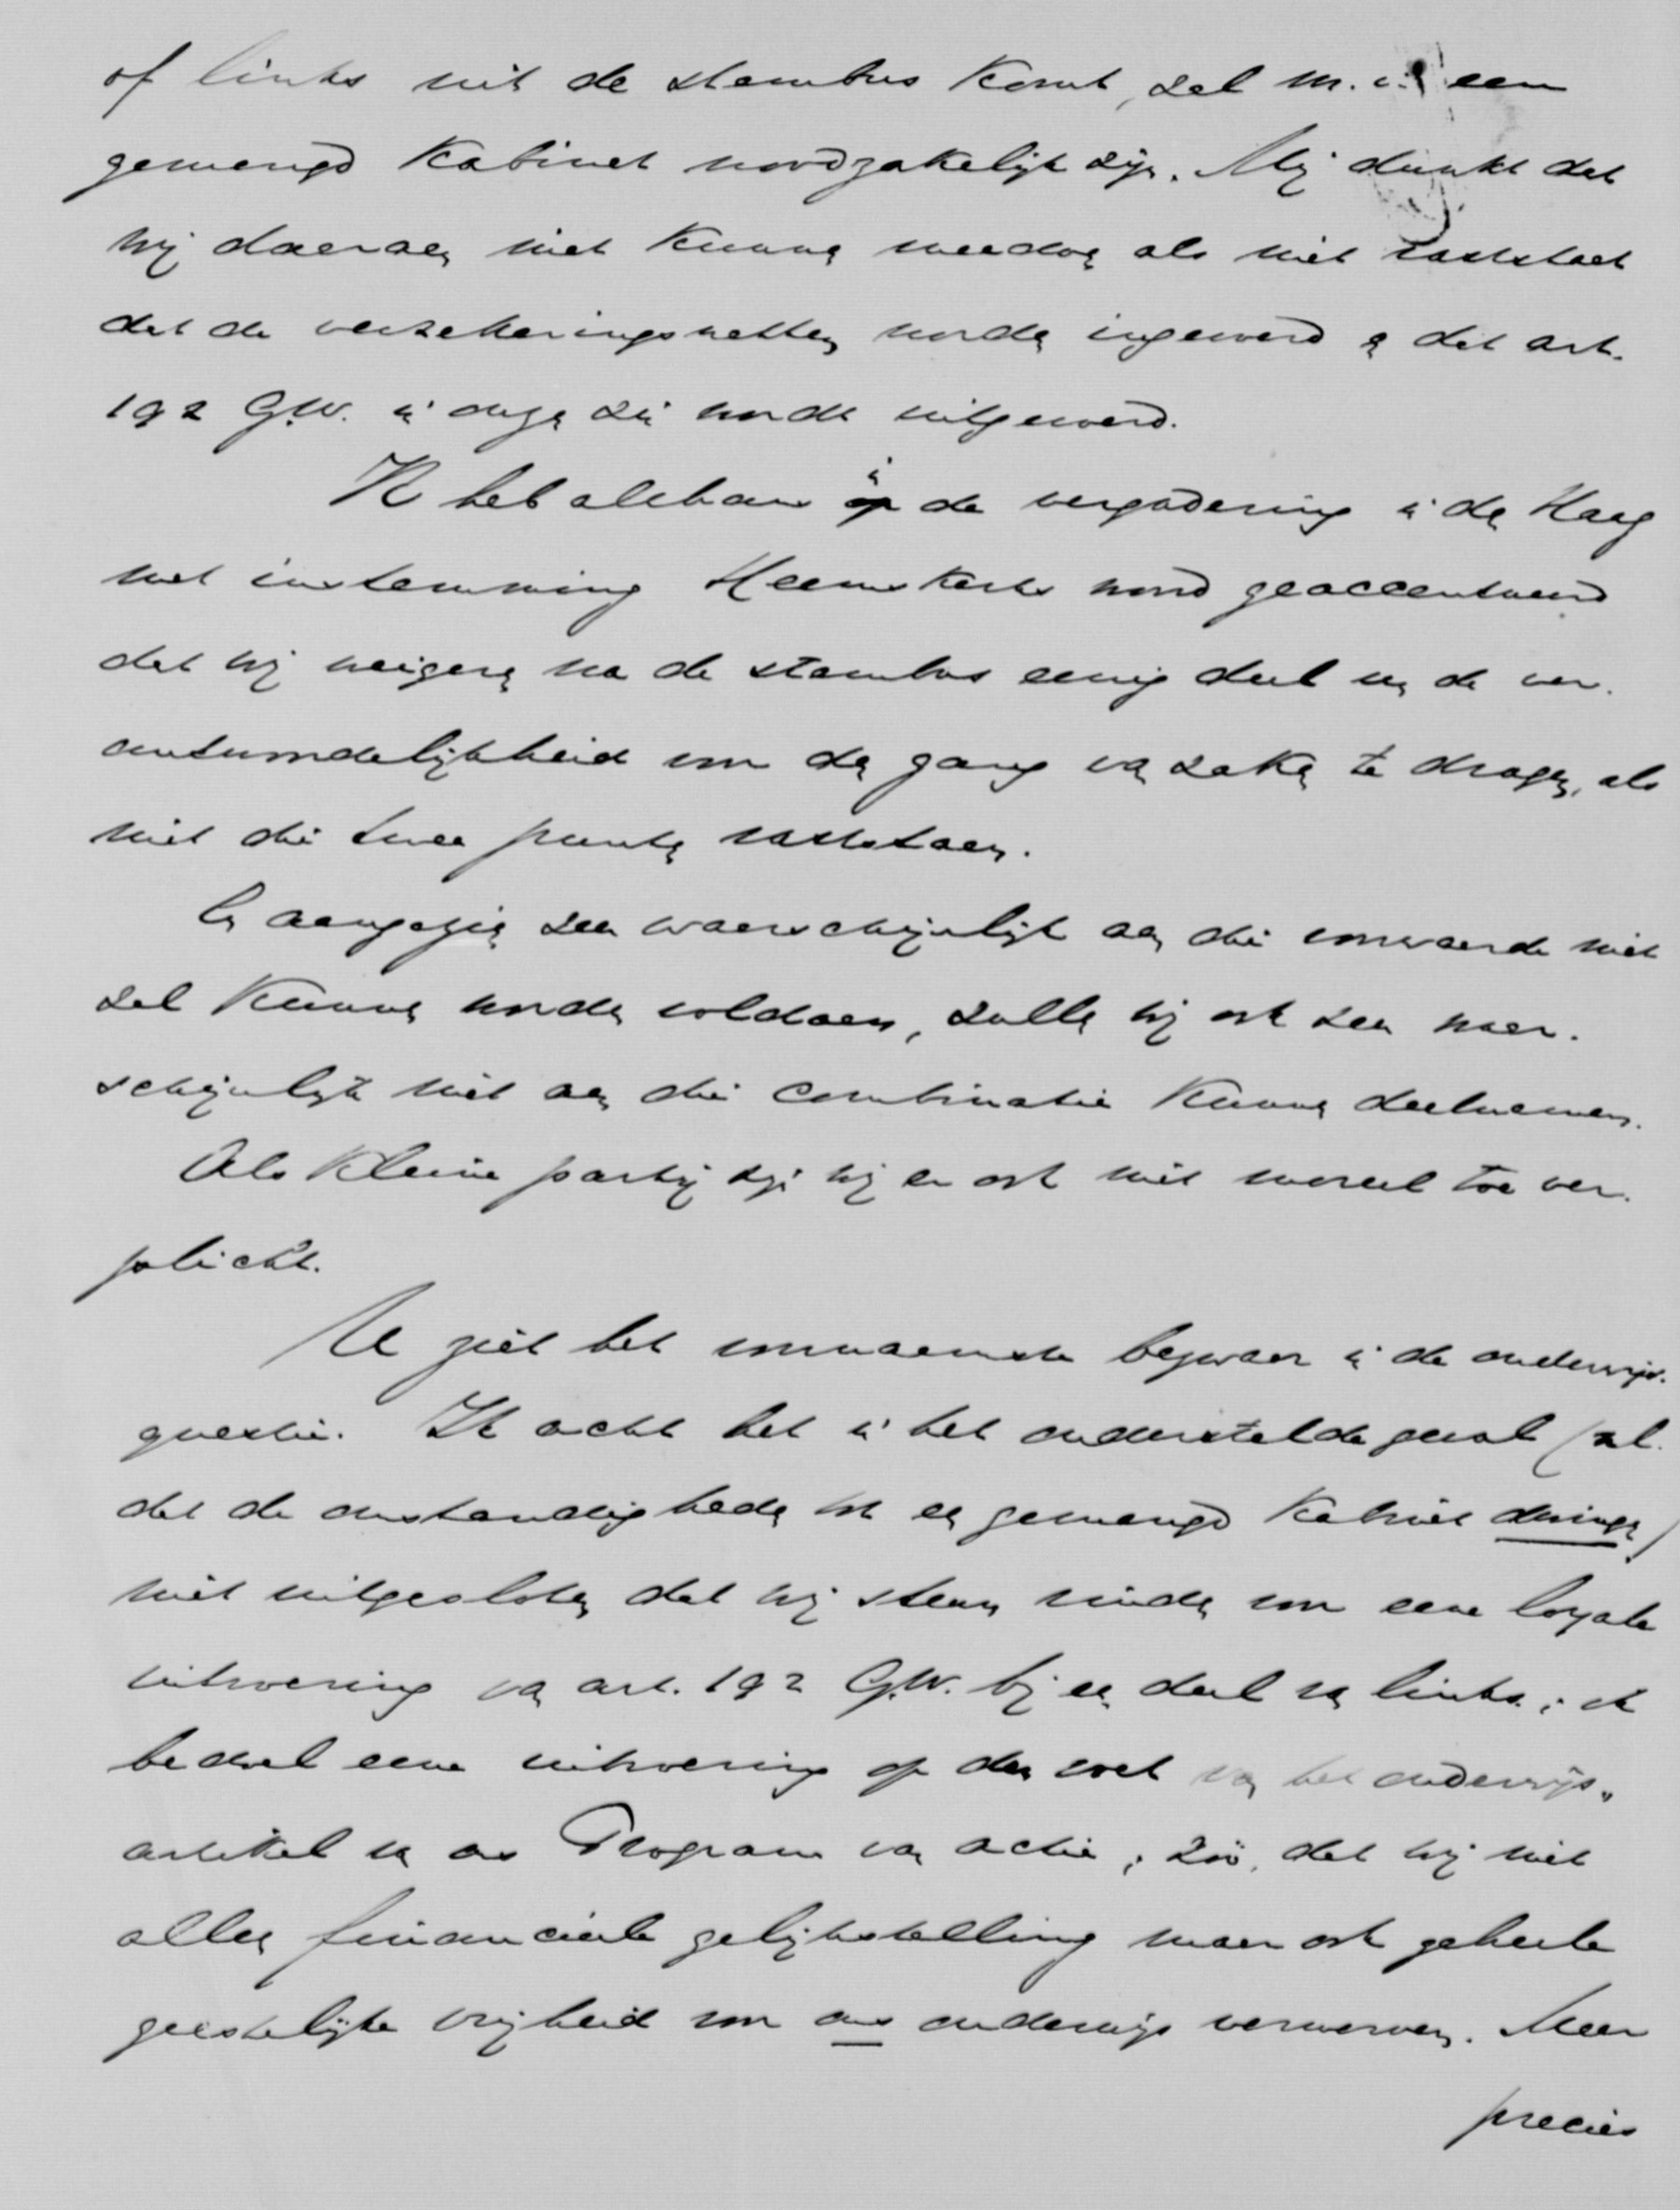 of links uit de stembus komt, zal m.i. een
gemengd Kabinet noodzakelijk zijn. Mij dunkt dat
wij daaraan niet kunnen meedoen als niet vaststaat
dat de verzekeringswetten worden ingevoerd en dat art.
192 G.W. in onzen zin wordt uitgevoerd.
Ik heb althans in de vergadering in den Haag
met instemming Heemskerks woord geaccentueerd
dat wij weigeren na de stembus eenig deel van de ver-
antwoordelijkheid voor den gang van zaken te dragen, als
niet die twee punten vaststaan.
En aangezien zeer waarschijnlijk aan die voorwaarde niet
zal kunnen worden voldaan, zullen wij ook zeer waar-
schijnlijk niet aan die combinatie kunnen deelnemen.
Als kleine partij zijn wij er ook niet moreel toe ver-
plicht.
U ziet het voornaamste bezwaar in de onderwijs-
questie. Ik acht het in het onderstelde geval (nl.
dat de omstandigheden tot een gemengd Kabinet dwingen)
niet uitgesloten dat wij steun vinden voor eene loyale
uitvoering van art. 192 G.W. bij een deel van links; ik
bedoel eene uitvoering op den voet van het onderwijs-
artikel van ons Program van actie; zóó, dat wij niet
alleen financieele gelijkstelling maar ook geheele
geestelijke vrijheid voor ons onderwijs verwerven. Maar
precies